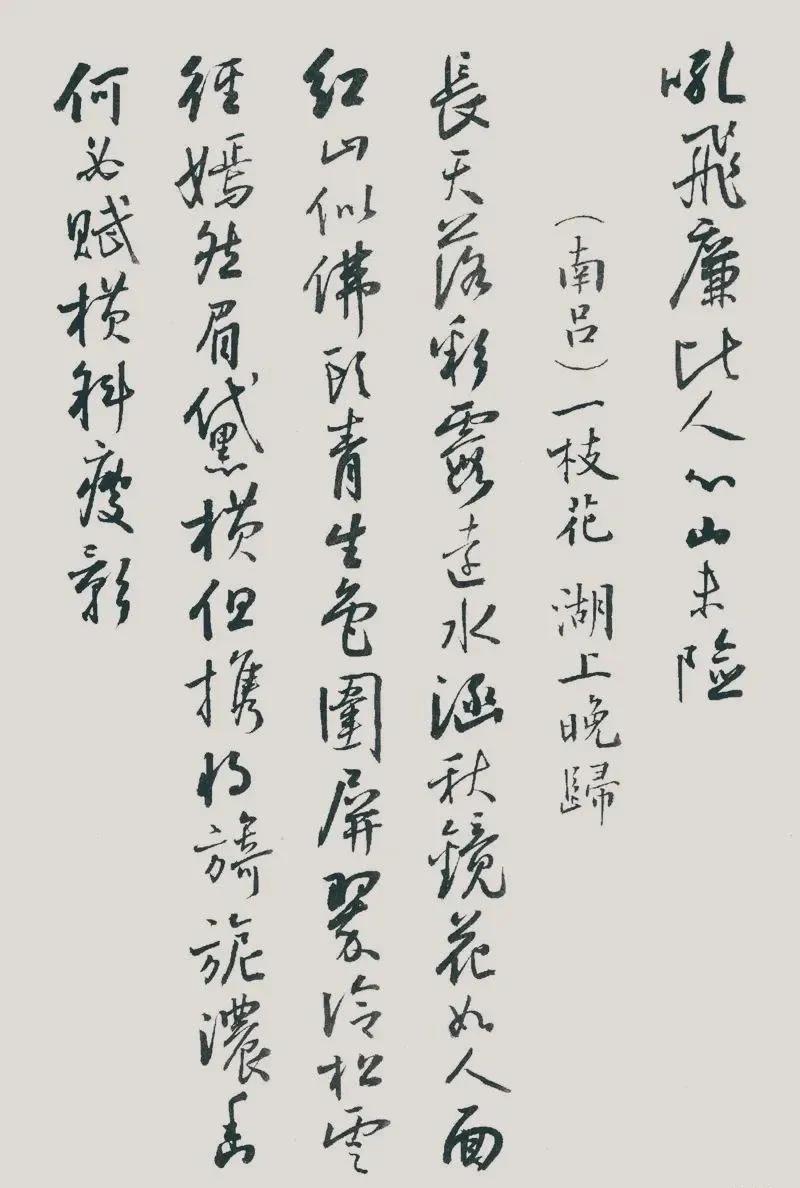 吼飛廉比人心山未險
（南呂）一枝花 湖上晚歸
長天落彩霞遠水涵秋鏡花如人面
紅山似佛頭青生色圍屏翠冷松雲
徑嫣然眉黛橫但携將旖旎濃香
何必賦橫斜瘦影